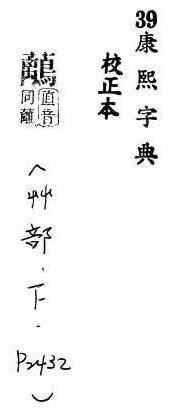 39康熙字典
校正本
直音
同
(艸部.下.P2432)